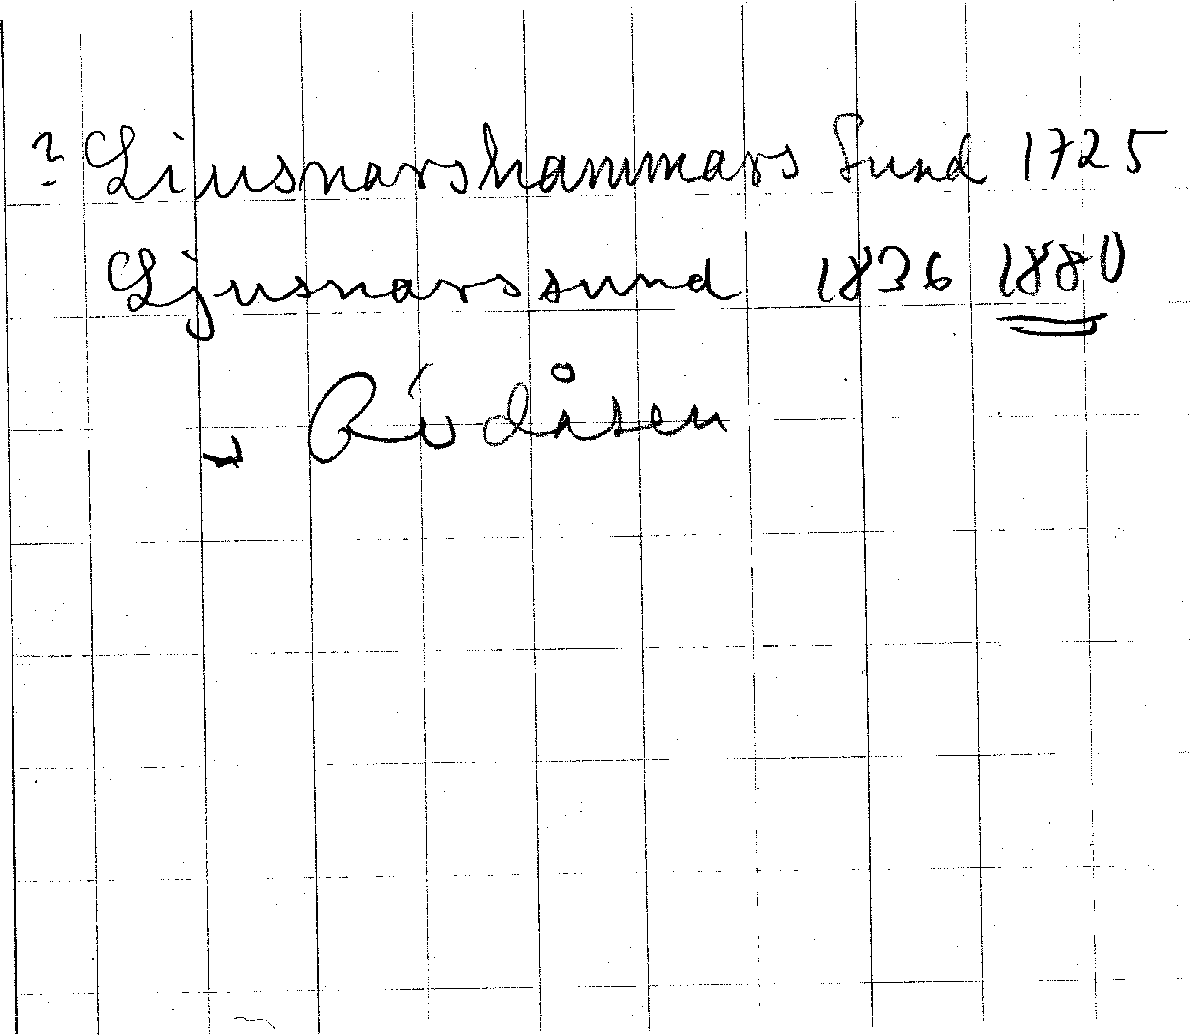 ? Liusnarshammars Sund 1725
Ljusnarssund 1836 1880
Rödåsen